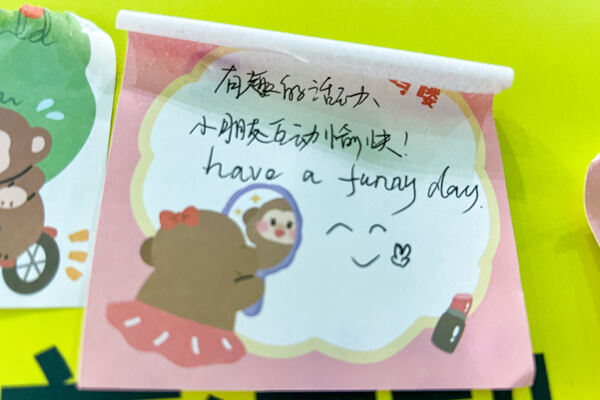 有趣的活动、
小朋友互动愉快!
have a funny day.